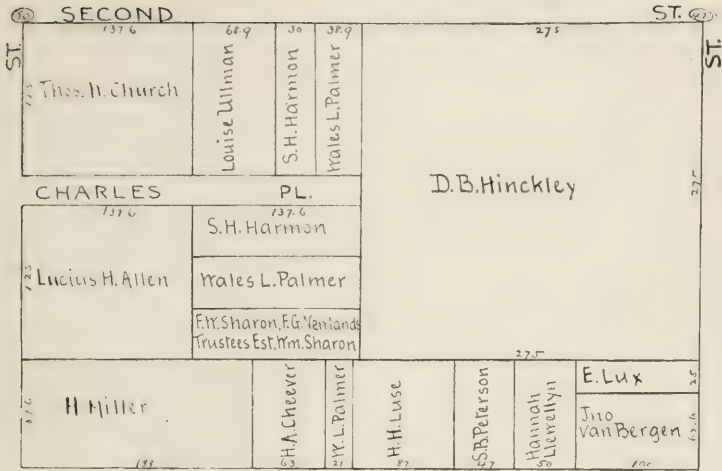 SECOND ST.
ST.
ST.
137.6 68.9 30 38.9 275
Thos. H. Church
Louise Ullman
S.H. Harmon
Wales L. Palmer
D.B. Hinckley
275
CHARLES PL.
137.6 137.6
125
Lucius H. Allen
S.H. Harmon
Wales L. Palmer
F.W. Sharon, F.G. Newlands
Trustees Est. Wm. Sharon
275
H Miller
H.A. Cheever
W. L. Palmer
H.H. Luse
S.B. Peterson
Hannah
Llewellyn
E. Lux
25
Jno
Van Bergen
63 21 87 47 50